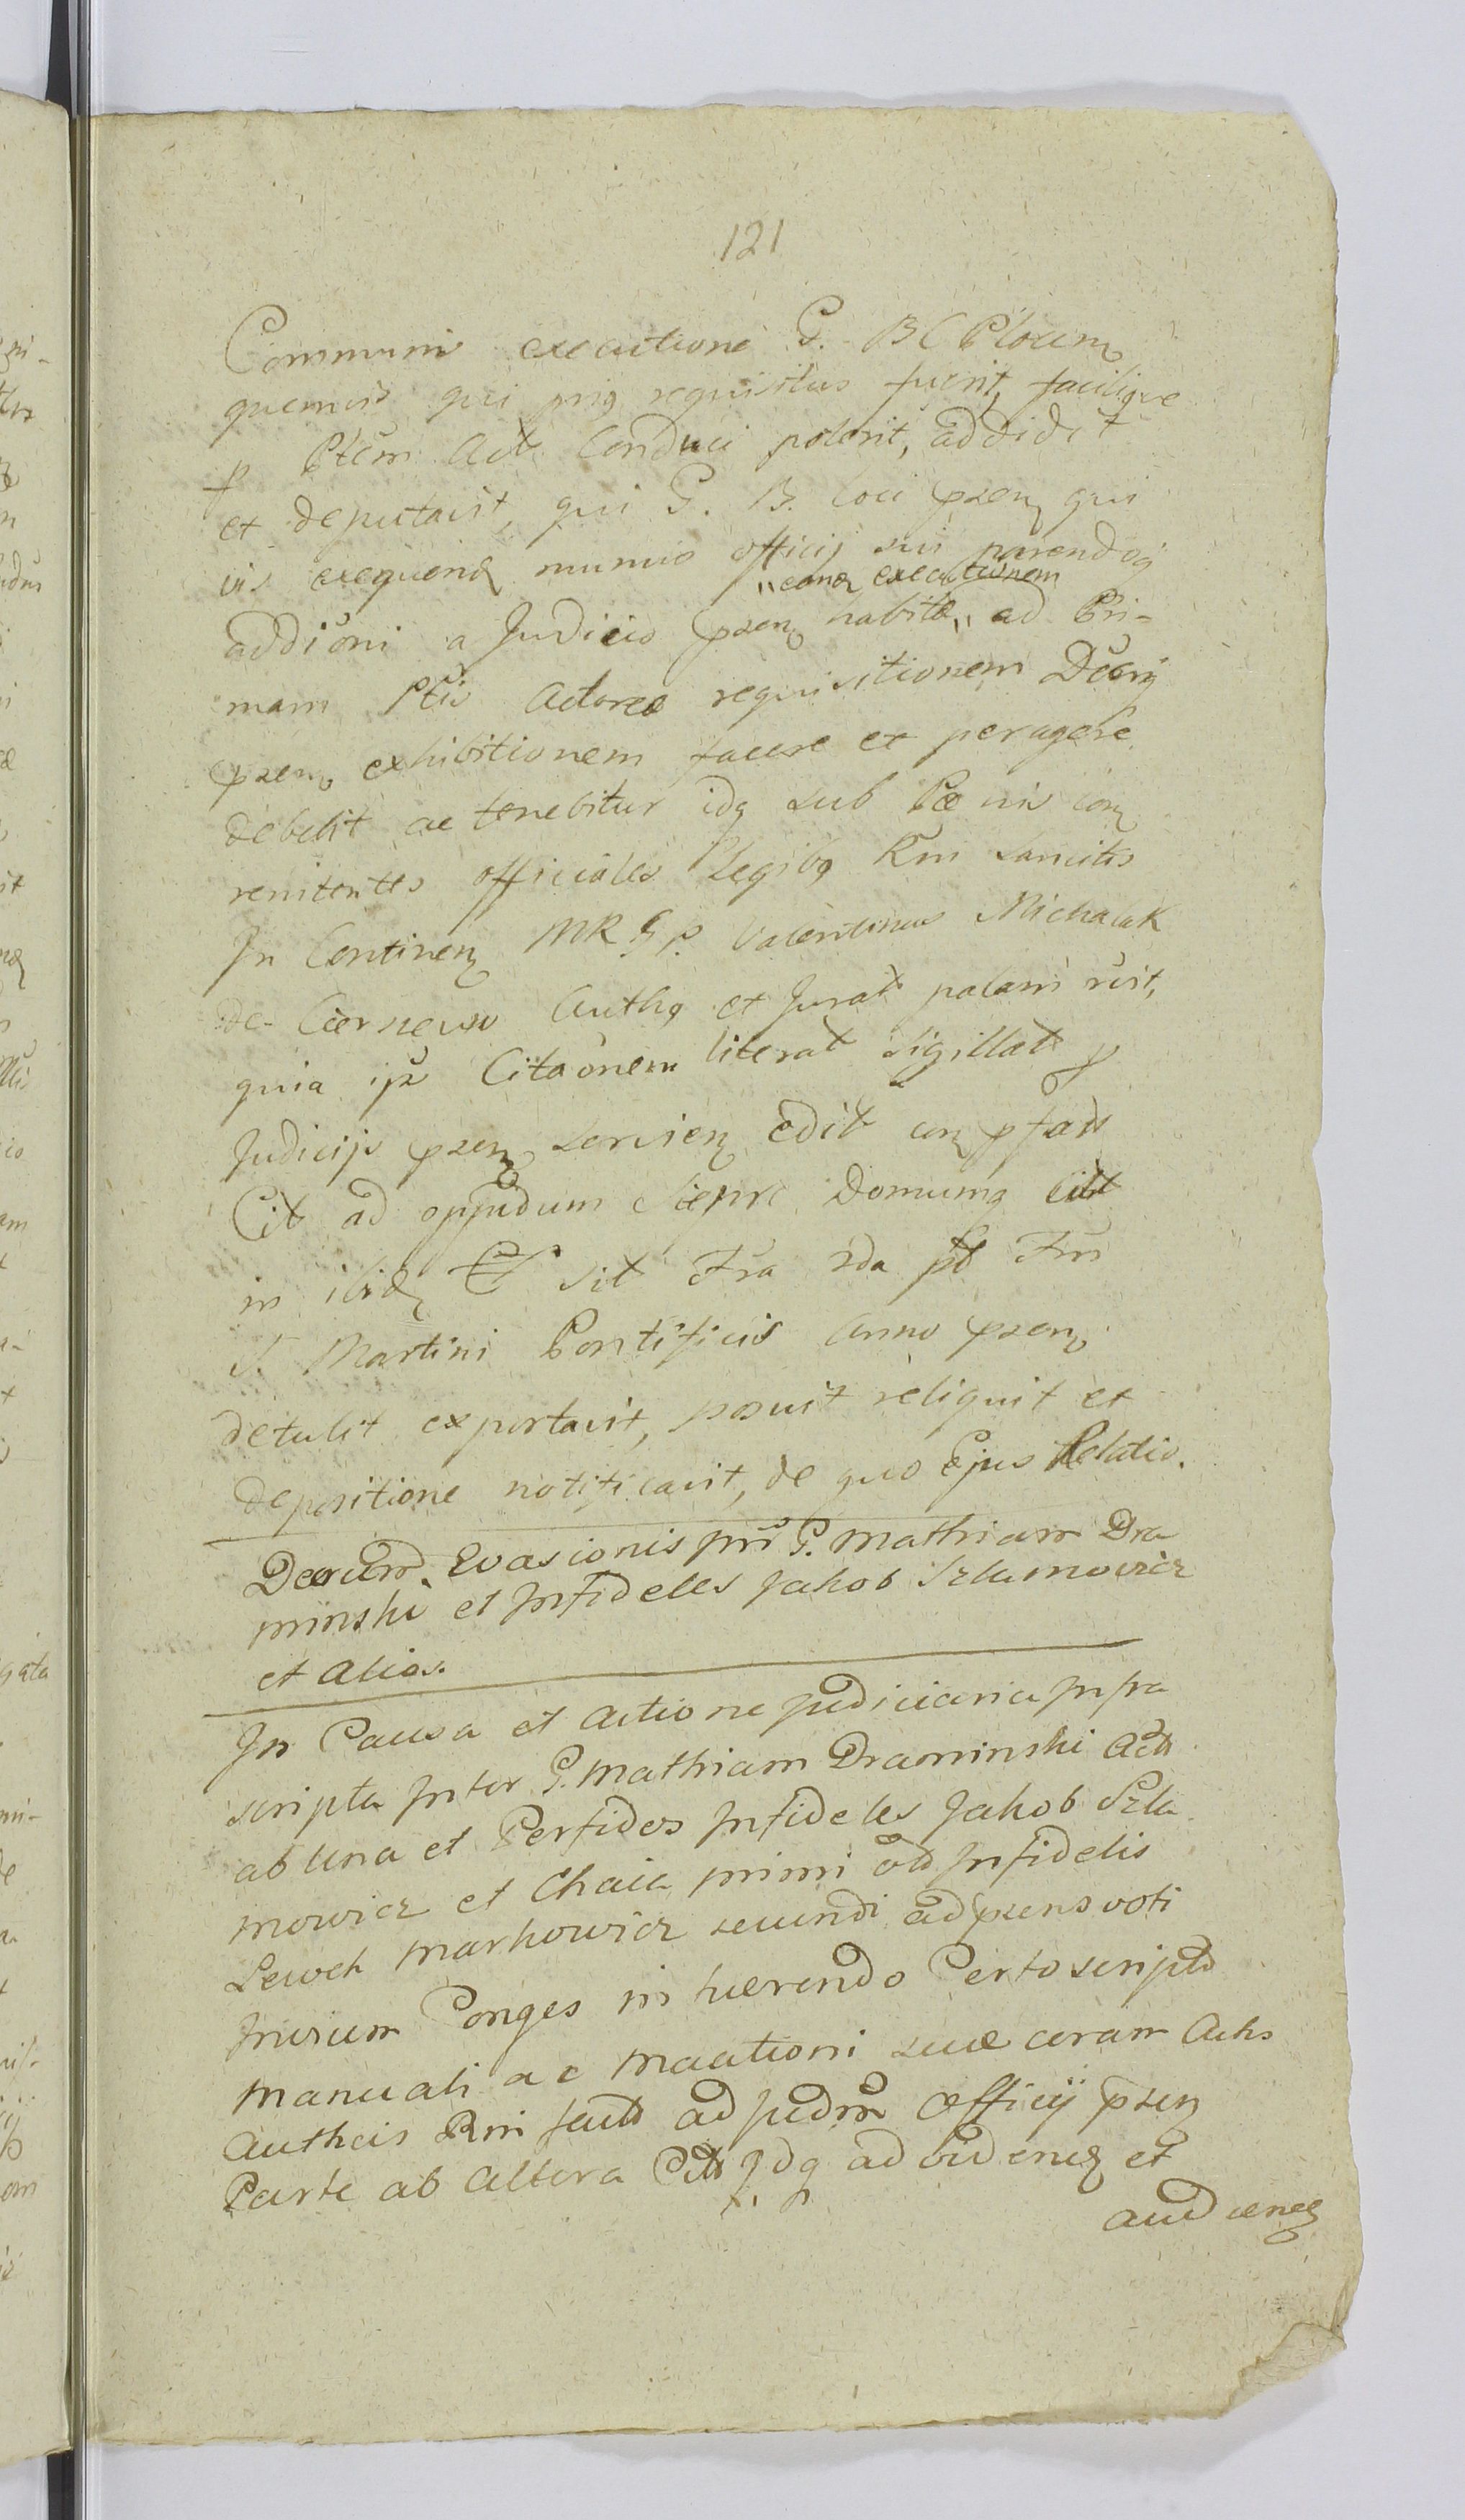 121
Communi executione G. BC Plocen
quemvis qui prig requisitus fuerit, facilique
p Ptem Act Conduci poterit, addidit
et deputavit, qui G. B. loci pzen qui
vis exequend munuis officij sui parendog
"eand executionem
addioni a Judicio pzen habitæ " ad Pri-
mam Ptis Actoreæ requisitionem Decrij
pzen exhibitionem facere et peragere
debebit ac tenebitur idq sub Pœnis con
renitentes officiales Legibq Rni sancitis
In Continen MR G P. Valentinus Michalak
de Authq et Jurat palam rcit,
quia ips Citaonem literat sigillat p
Judicijs pzen servien edit con pfats
Cit ad oppidum Sierpc Domumq
in ibid sit Fra 2da pt Fm
S. Martini Pontificis Anno pzen
detulit exportavit, posuit reliquit et
depositione notificavit, de quo Ejus Relatio.
Decrum Evasionis pm G. Mathiam Dra
minski et Infideles Jakob Szlamowicz
et alios.
In Causa et Actione judiciaria Infra
scripta Inter G. Mathiam Draminski Act
ab una et Perfidos Infideles Jakob Szla
mowicz et Chaia primi od Infidelis
Lewek Markowicz secundi ad pzens voti
Invicem Conges inhærendo Certo scripto
Manuali ac Maationi suæ coram Actis
Authcis Rni factæ ad judm Officij pzen
Parte ab altera Citt Idq ad videnq et
audienq